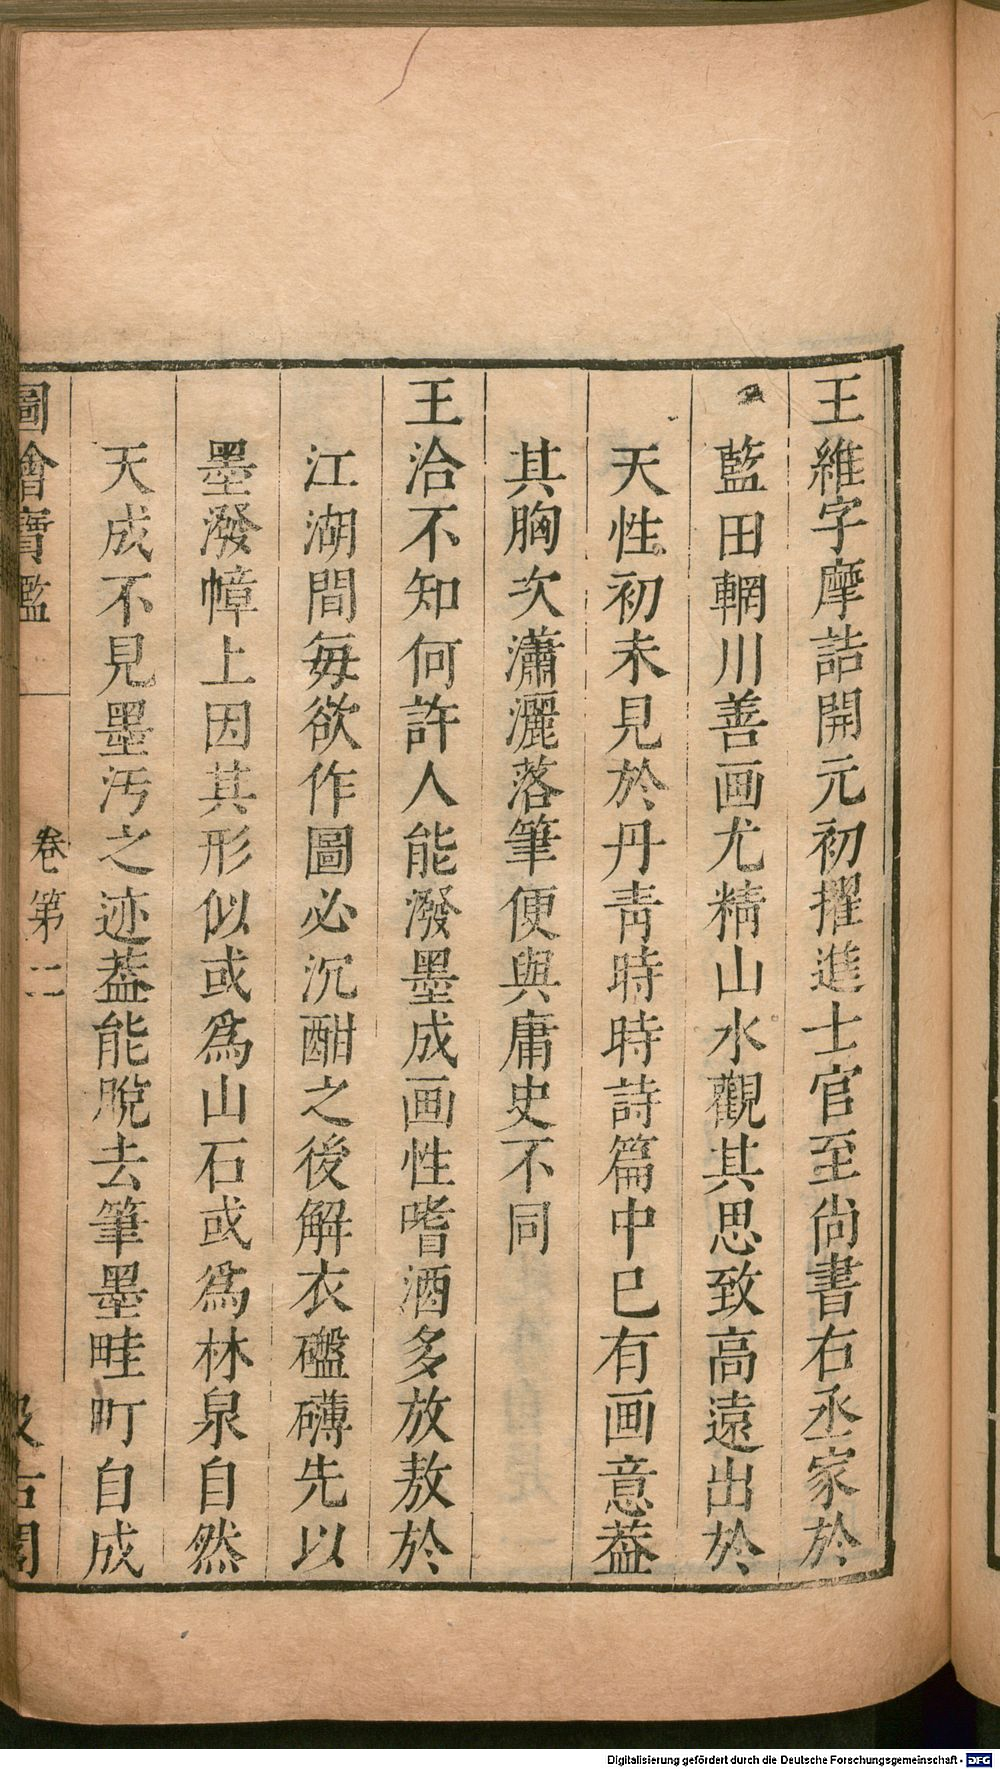 王維字摩詰開元初擢進士官至尚書右丞家於
藍田輞川善画尤精山水觀其思致高遠出於
天性初未見於丹青時時詩篇中已有画意葢
其胸次瀟灑落筆便與庸史不同
王洽不知何許人能潑墨成画性嗜酒多放敖於
江湖間每欲作圖必沉酣之後解衣礠礴先以
墨潑幛上因其形似或為山石或為林泉自然
天成不見墨汚之迹葢能脫去筆墨畦町自成
圖繪寶鑑 卷第二 汲古閣
Digitalisierung gefördert durch die Deutsche Forschungsgemeinschaft - DFG